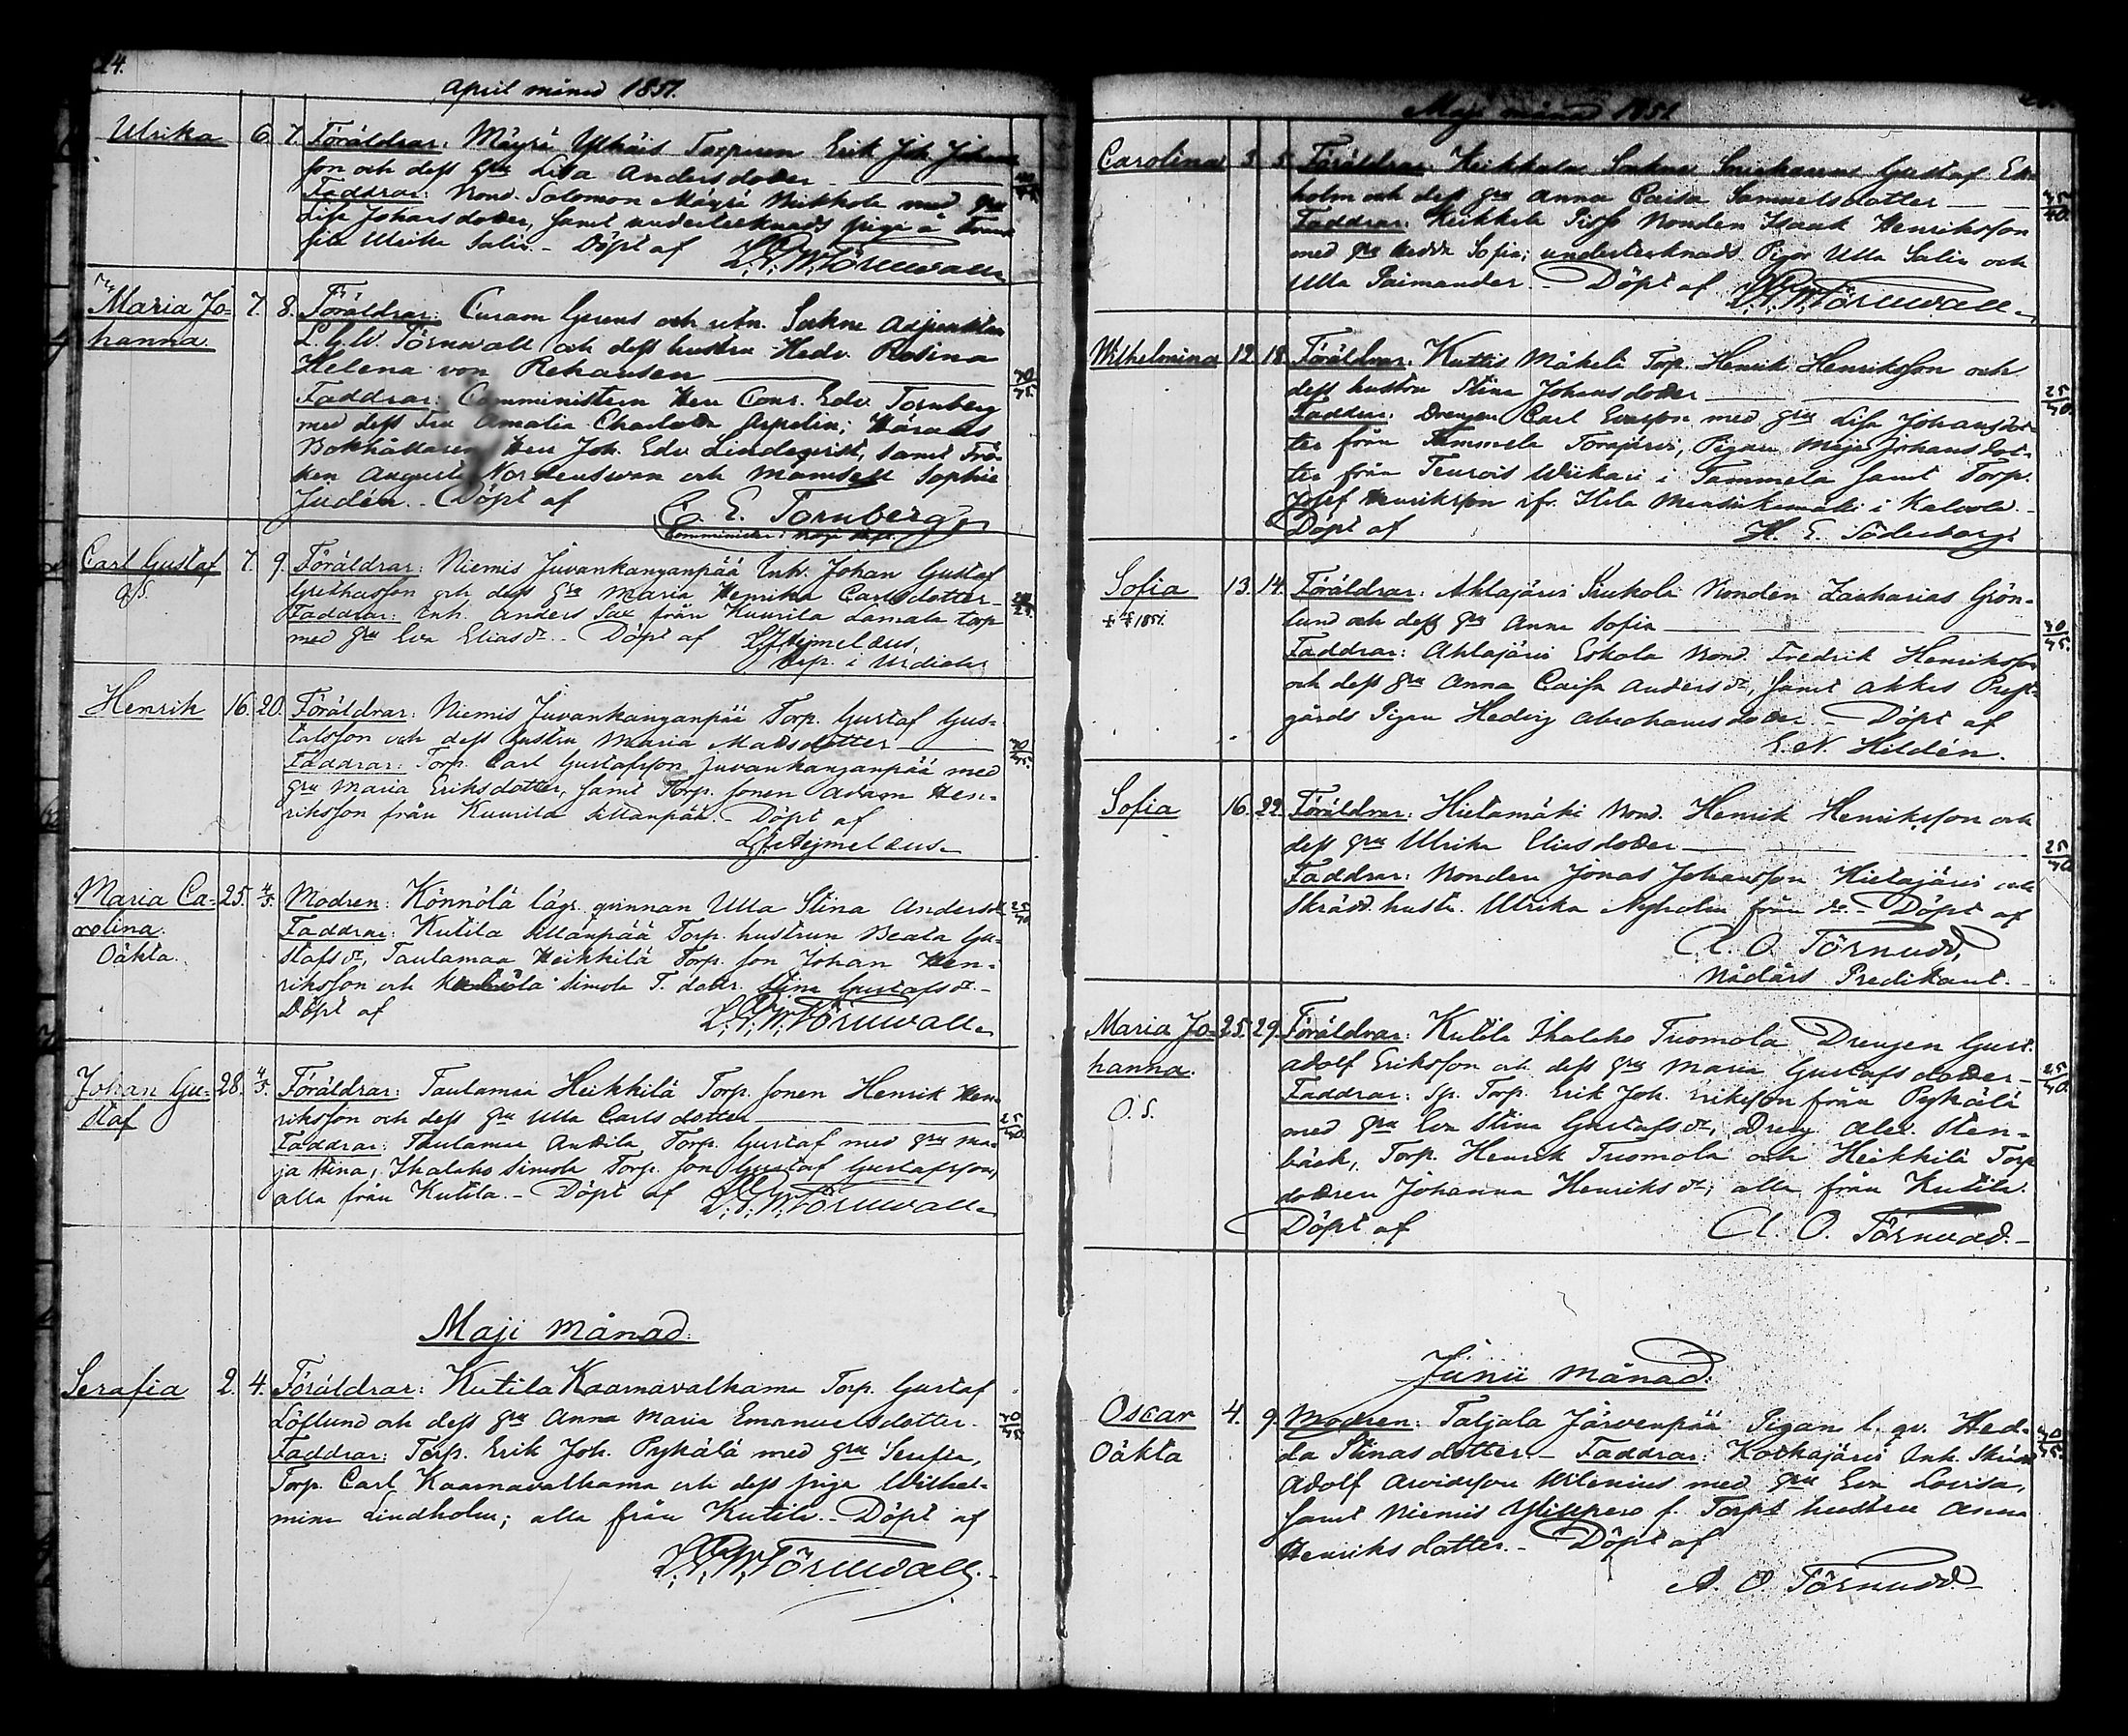 24.
April månad 1851.
Ulrika 6. 7. Föräldrar: Mäyrä Torparen Erik Joh. Johans-
son och dess hu Lisa Andersdotter
Faddrar: Bond. Solomon Mäyrä med hu
Lisa Johansdotter, samt undertecknads piga
Ulrika Salin. - Döpt af L. G. W. Törnwall
Maria Jo- 7. 8. Föräldrar: Curam Gerens och Sockne Adjunkten
hanna. L. G. W. Törnwall och dess hustru Hedv. Rosina
Helena von Rehausen 30/35.
Faddrar: Comministern Herr Conr. Edv. Tornberg
med dess Fru Amalia Charlotta Arpelin; Härads
Bokhållaren Herr Joh. Edv. Lindeqvist, samt Frö-
ken Augusta Nordenswan och Mamsell Sophie
Judén. - Döpt af C. E. Tornberg
Comminister
Carl Gustaf 7. 9. Föräldrar: Niemis Juvankanganpää Inh. Johan Gustaf
och dess hu Maria Henrika Carlsdotter
Faddrar: Inh. Anders Sax från Kuurila Lamala torp
med hu Eva Eliasdr. - Döpt af Hejmelæus,
Cap. i Urdiala
Henrik 16. 20. Föräldrar: Niemis Juvankanganpää Torp. Gustaf Gus-
tafsson och dess hustru Maria Madsdotter
Faddrar: Torp. Carl Gustafsson Juvankanganpää med
hu Maria Eriksdotter, samt Torp. sonen Adam Hen-
riksson från Kuurila Sillanpää. - Döpt af
Hejmelæus.
Maria Ca- 25. 4/5. Modren: Könnölä lägr. qvinnan Ulla Stina Andersdr 25/30
rolina. Faddrar: Kutila Sillanpää Torp. hustrun Beata Gu-
Oäkta. stafsdr, Taulamaa Heikkilä Torp. son Johan Hen-
riksson och Simola T. dottr. Stina Gustafsdr. -
Döpt af L. G. W. Törnwall
Johan Gu- 28. 4/5. Föräldrar: Taulamaa Heikkilä Torp. sonen Henrik Hen-
staf riksson och dess hu Ulla Carlsdotter 25/30.
Faddrar: Taulamaa Anttila Torp. Gustaf med hu Ma-
ja Stina, Ihaleho Simola Torp. son Gustaf Gustafsson,
alla från Kutila. - Döpt af L. G. W. Törnwall
Maji månad.
Serafia 2. 4. Föräldrar: Kutila Kaarnavalkama Torp. Gustaf
Löflund och dess hu Anna Maria Emanuelsdotter. 30/35
Faddrar: Torp. Erik Joh. Pykälä med hu Serafia,
Torp. Carl Kaarnavalkama och dess piga Wilhel-
mina Lindholm; alla från Kutila. - Döpt af
L. G. W. Törnwall.
Maji månad 1851
Carolina 3. 5. Föräldrar: Heikkola Sockne Gustaf Ek-
holm och dess hu Anna Caisa Samuelsdotter 35/40.
Faddrar: Heikkilä Bonden Isaak Henriksson
med hu Hedda Sofia; undertecknads Pigor Ulla Salin och
Ulla Paimander. - Döpt af L. G. W. Törnwall
Wilhelmina 12. 18. Föräldrar: Kuttis Mäkelä Torp. Henrik Henriksson och
dess hustru Stina Johansdotter 25/30
Faddrar: Drengen Carl med hu Lisa Johansdot-
ter från Tammela Torajärvi, Pigan Maja Johansdot-
ter från Teurois Wiikari i Tammela samt Torp.
Josef Henriksson Kalvola. -
Döpt af H. E. Söderborg.
Sofia 13. 14. Föräldrar: Ahlajärvi Bonden Zacharias Grön-
1851. lund och dess hu Anna Sofia 30/35.
Faddrar: Ahlajärvi Eskola Bond. Fredrik Henriksson
och dess hu Anna Caisa Andersdr, samt Akkas Prest-
gårds Pigan Hedvig Abrahamsdotter. - Döpt af
Hildén.
Sofia 16. 22. Föräldrar: Hietamäki Bond. Henrik Henriksson och
dess hu Ulrika Eliasdotter 25/30
Faddrar: Bonden Jonas Johansson Hietajärvi och
Skrädd. hustr. Ulrika Nyholm från do. - Döpt af
A. O. Törnudd,
Nådårs Predikant.
Maria Jo- 25. 29. Föräldrar: Kutila Ihaleho Tuomola Drengen Gust.
hanna. Adolf Eriksson och dess hu Maria Gustafsdotter 25/30.
O. S. Faddrar: Sp. Torp. Erik Joh. Eriksson från Pykälä
med hu Eva Stina Gustafsdr, Dreng Alex. Sten-
bäck, Torp. Henrik Tuomola och Heikkilä Torp
dottren Johanna Henriksdr; alla från Kutila.
Döpt af A. O. Törnudd. -
Junii månad.
Oscar 4. 9. Modren: Taljala Järvenpää Pigan l. qv. Hed- 30/35.
Oäkta da Stinasdotter. - Faddrar: Kotkajärvi Inh. Skrädd
Adolf Arvidsson Wilenius med hu Eva Lovisa,
samt Niemis f. Torp hustru Anna
Henriksdotter. - Döpt af
A. O. Törnudd. -